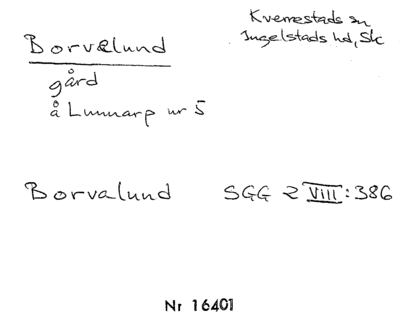 Borvalund
Kverrestads sn
Ingelstads hd, Sk
gård
å Lunnarp nr 5
Borvalund SGG 2 VIII:386
Nr 16401